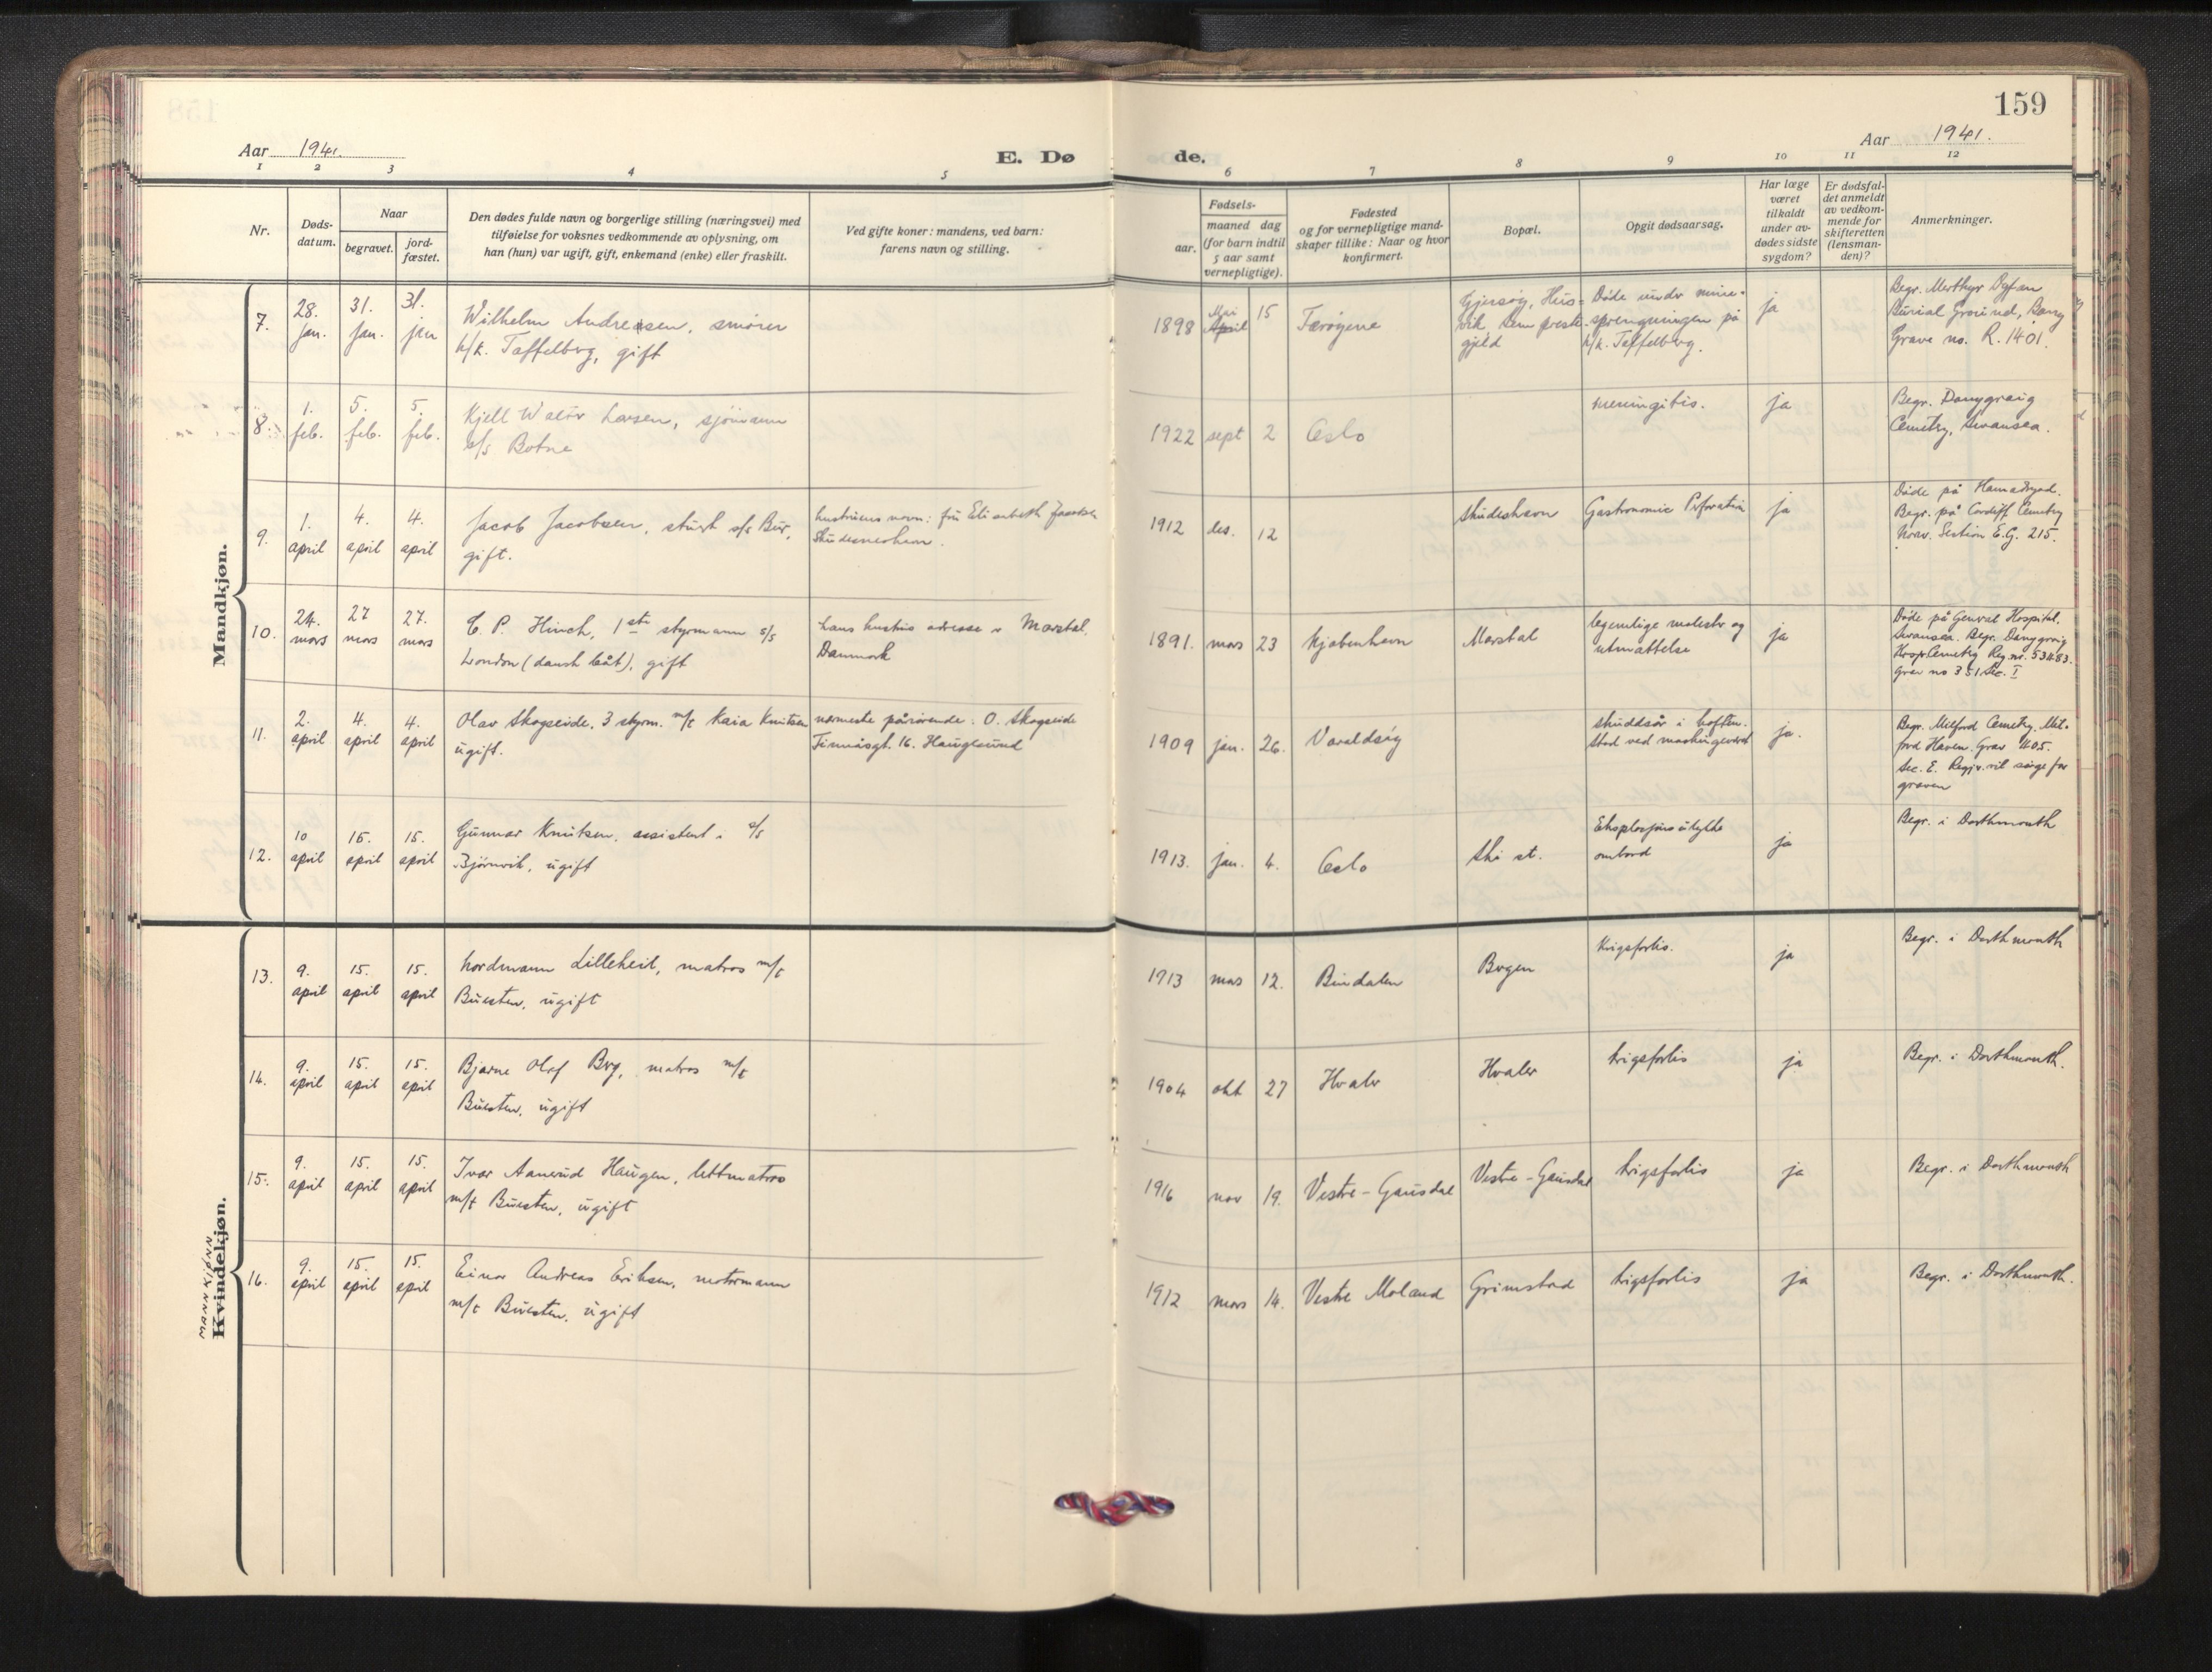 159
Aar 1941.
E. Dø
de.
Aar 1941.
1 2 3 4 5 6 7 8 9 10 11 12
Nr.
Døds-
datum.
Naar
begravet.
jord-
fæstet.
Den dødes fulde navn og borgerlige stilling (næringsvei) med
tilføielse for voksnes vedkommende av oplysning, om
han (hun) var ugift, gift, enkemand (enke) eller fraskilt.
Ved gifte koner: mandens, ved barn:
farens navn og stilling.
Fødsels-
aar.
maaned dag
(for barn indtil
5 aar samt
vernepligtige).
Fødested
og for vernepligtige mand-
skaper tillike: Naar og hvor
konfirmert.
Bopæl.
Opgit dødsaarsag.
Har læge
været
tilkaldt
under av-
dødes sidste
sygdom?
Er dødsfal-
det anmeldt
av vedkom-
mende for
skifteretten
(lensman-
den)?
Anmerkninger.
Mandkjøn.
7.
28.
jan.
31.
jan.
31.
jan
Wilhelm Andreasen, smører
h/k. Taffelberg, gift
1898
Mai
April
15
Færøyene
vik, preste-
gjeld
Døde under mine-
sprengningen på
h/k. Taffelberg.
ja
Begr. Merthyr Dyfan
Burial Ground, Barry
Grave no. R. 1401.
8.
1.
feb.
5.
feb.
5.
feb.
Kjell Larsen, sjømann
s/s Botne
1922 sept 2 Oslo
meningitis.
ja
Begr. Danygraig
Cemetry, Swansea.
9.
1.
april
4.
april
4.
april
Jacob Jacobsen, stuert s/s Bur,
gift.
hustruens navn: fru Elisabeth Jacobsen
Skudesneshavn.
1912 des. 12
Skudeshavn
Gastronomic Perforation
ja
Døde på Hamadryad.
Begr. på Cardiff Cemetry
Norw. Section E.G. 215.
10.
24.
mars
27
mars
27.
mars
C. P. Hinch, 1ste styrmann s/s
London (dansk båt), gift
hans hustrus adresse er Marstal,
Danmark
1891. mars 23 Kjøbenhavn
Marstal
legemlige molester og
utmattelse
ja
Døde på General Hospital.
Swansea. Begr. Danygraig
Hosp. Cemetry Reg.nr. 53483.
Grav no 351 Sec. I
11.
2.
april
4.
april
4.
april
Olav Skogseide, 3 styrm. m/t Kaia Knutsen
ugift.
nærmeste pårørende: O. Skogseide
16. Haugesund
1909 jan. 26. Varaldsøy
skuddsår i hoften.
Sted ved maskingevær
ja.
Begr. Milford Cemetry, Mil-
ford Haven. Grav 405.
Sec. E. Regjr. vil sørge for
graven
12.
10
april
15.
april
15.
april
Gunnar Knutsen, assistent. s/s
Bjørnvik, ugift
1913. jan. 4. Oslo
Ski st.
Eksplosjonsulykke
ombord
ja
Begr. i Darthmouth
MANNKJØNN.
Kvindekjøn.
13.
9.
april
15.
april
15.
april
Nordmann Lilleheil, matros m/t
Buesten, ugift
1913 mars 12. Bindalen
Bogen
Krigsforlis.
ja
Begr. i Darthmouth
14.
9.
april
15.
april
15.
april
Bjarne Olaf Berg, matros m/t
Buesten, ugift
1904 okt 27 Hvaler
Hvaler
krigsforlis
ja
Begr. i Darthmouth.
15.
9.
april
15.
april
15.
april
Ivar Aanerud Haugen, lettmatros
m/t Buesten, ugift
1916 nov 19. Vestre-Gausdal
Vestre-Gausdal
krigsforlis
ja
Begr. i Darthmouth
16.
9.
april
15.
april
15.
april
Einar Andreas Eriksen, motormann
m/t Buesten, ugift
1912 mars 14. Vestre Moland
Grimstad
krigsforlis
ja
Begr. i Darthmouth.